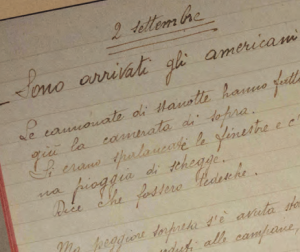 2 Settembre
- Sono arrivati gli americani
Le cannonate di stanotte hanno
giù la camerata di sopra.
Si erano spalancate le finestre e c'
na pioggia di schegge.
Dice che fossero tedesche.
Ma peggiore sorpresa s'è avuta sta
alle campane,